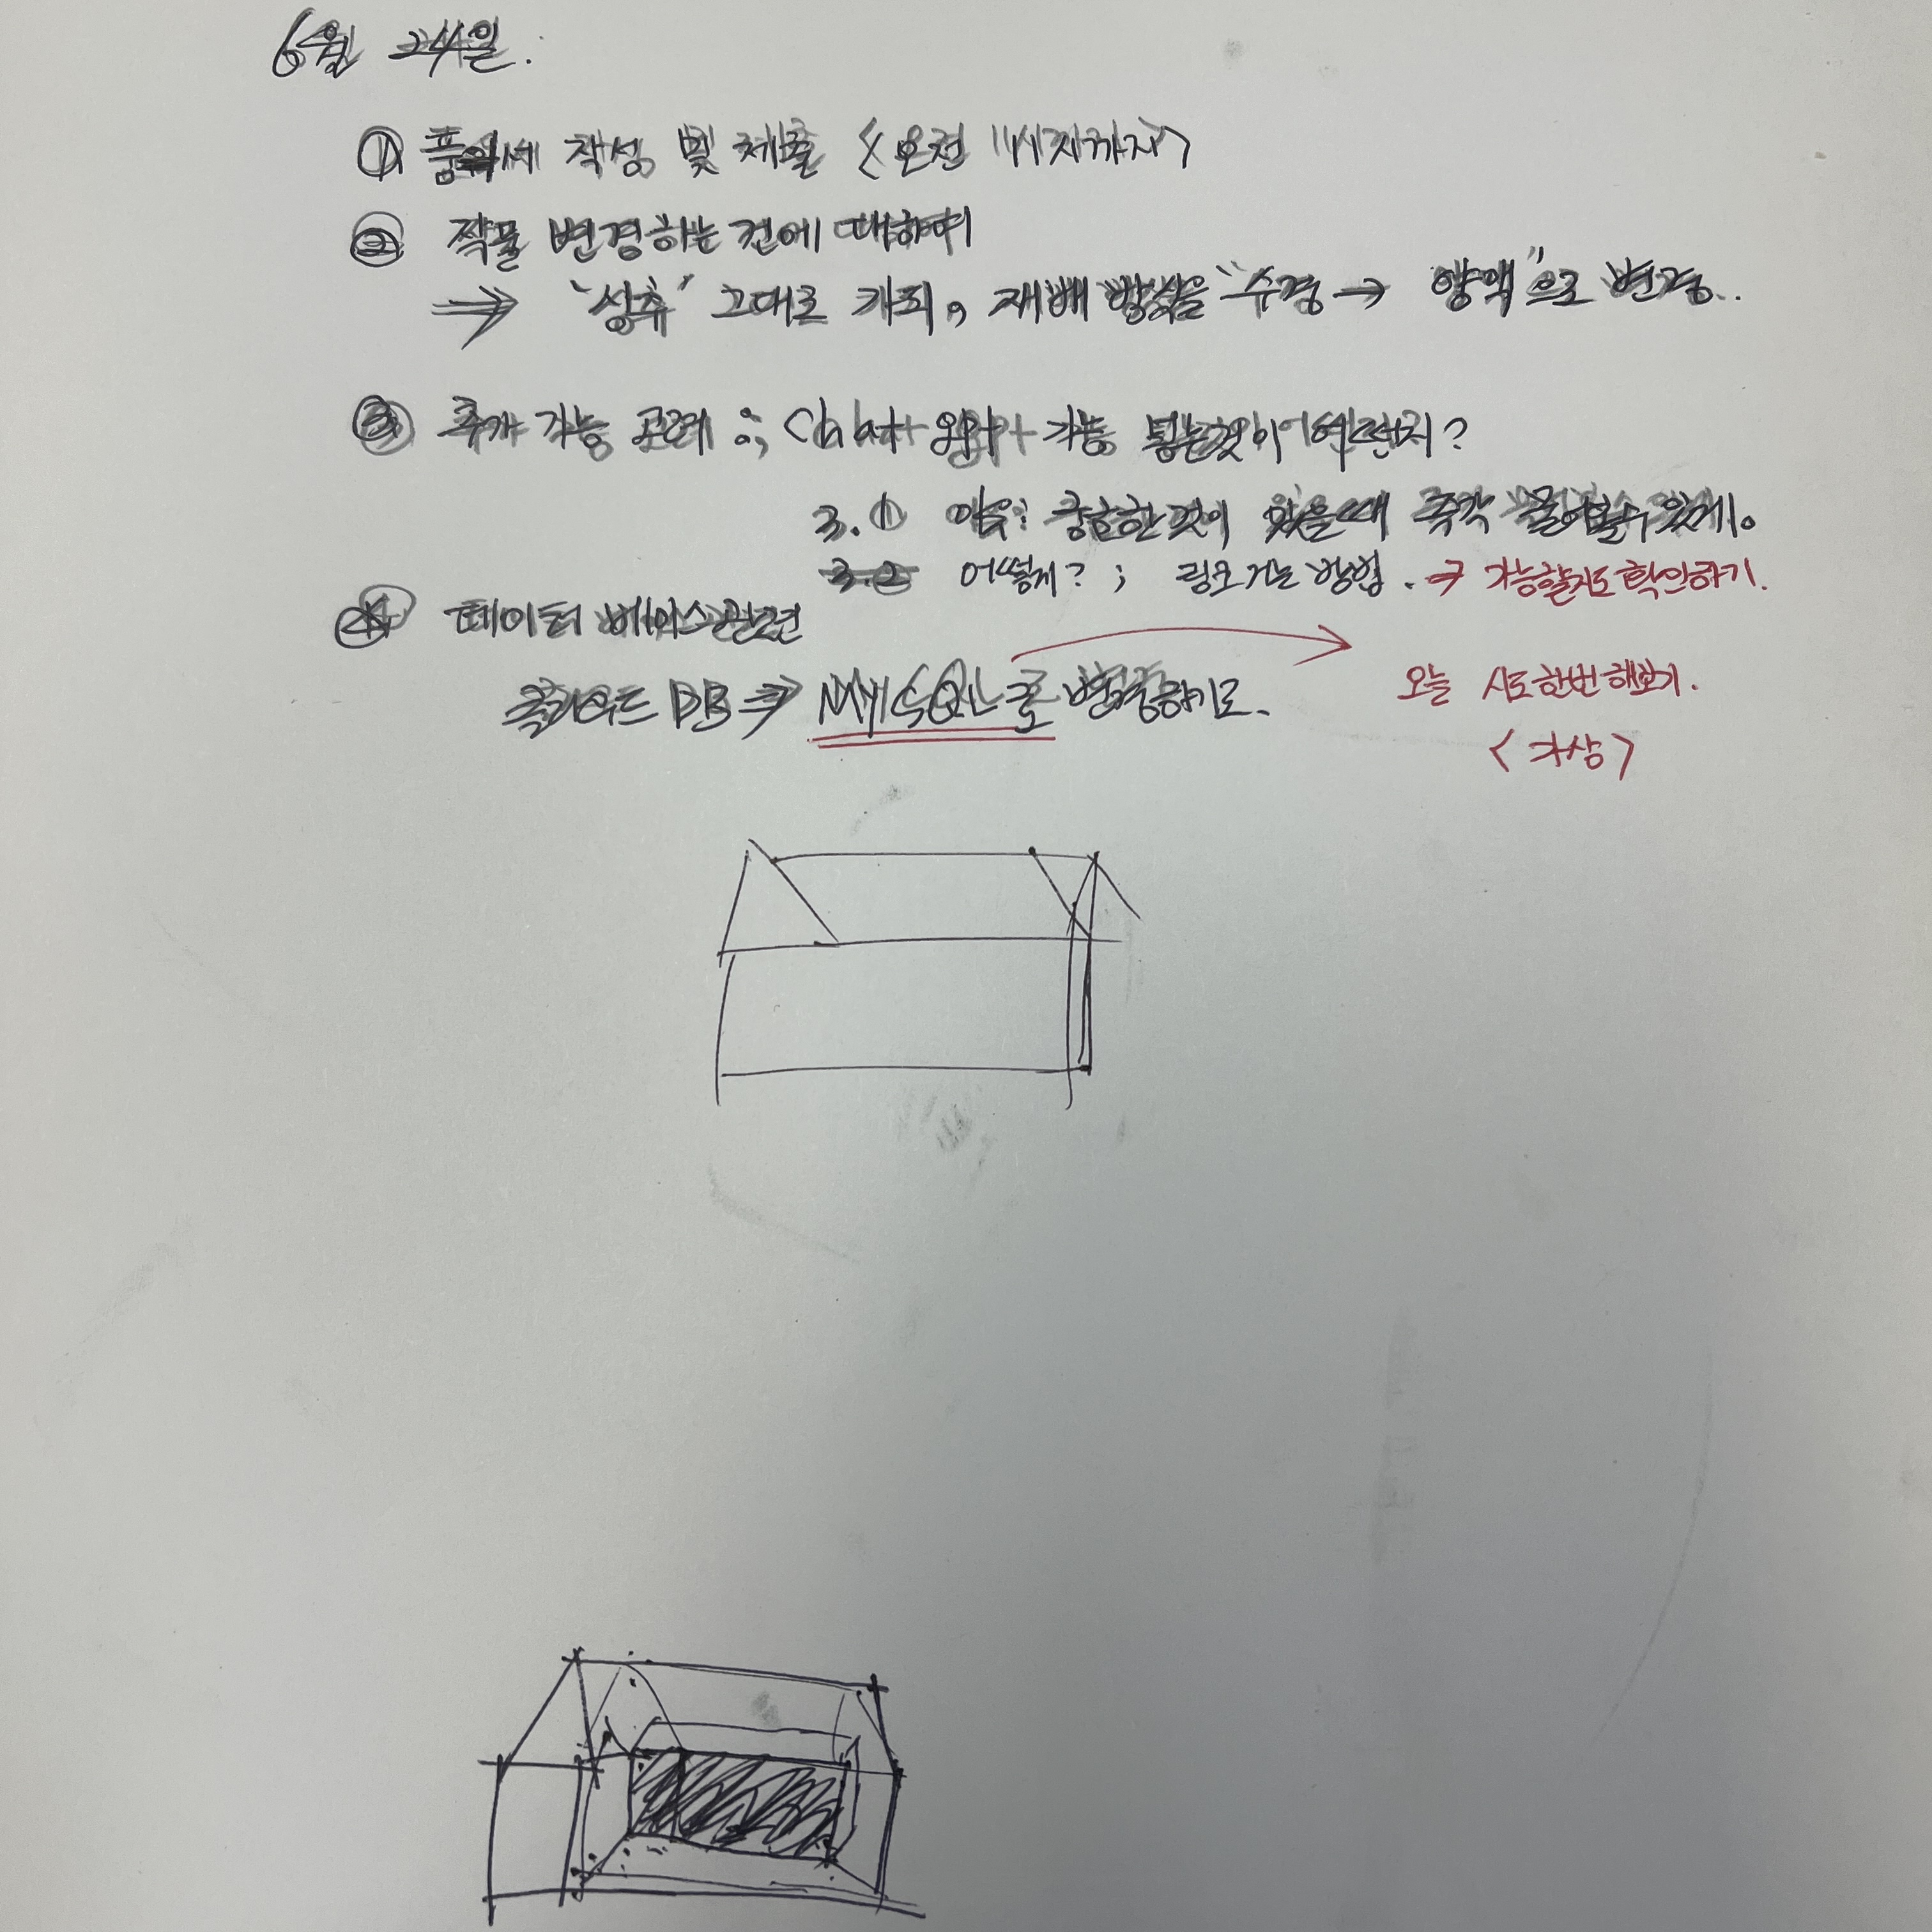 6월 24일.
① 품의서 작성 및 제출 <오전 11시까지>
② 작물 변경하는 건에 대하여
⇒ '상추' 그대로 가되, 재배 방식을 "수경 → 양액"으로 변경..
③ 추가 기능 고려 ; Chat GPT 기능 넣는것이 어떤지?
3.① 이유: 궁금한 것이 있을때 즉각 물어볼수 있게.
3.2 어떻게? ; 링크 거는 방법. ⇒ 가능할지도 확인하기.
④ 데이터 베이스 관련
클라우드 DB ⇒ MySQL로 변경하기로.
오늘 시도 한번 해보기.
<가상>